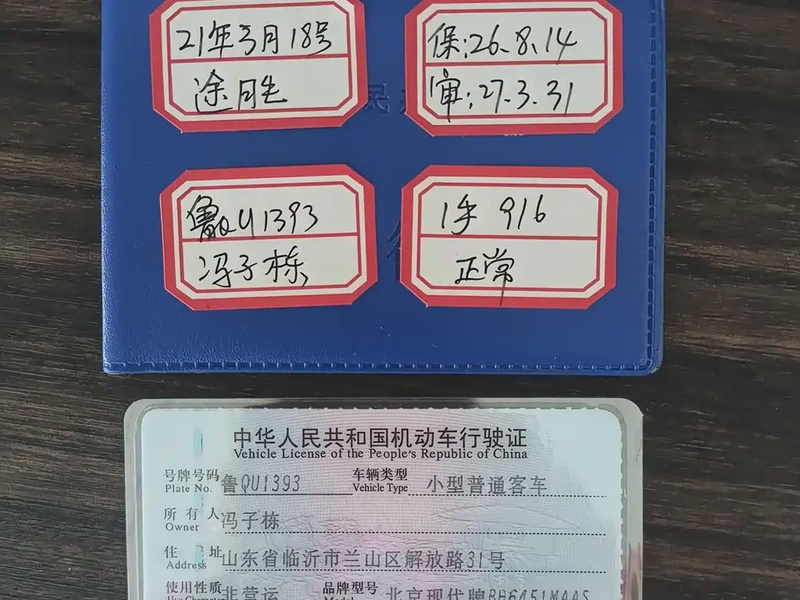 21年3月18号
途胜
保:26.8.14
审:27.3.31
鲁QU1393
冯子栋
1手 916
正常
中华人民共和国机动车行驶证
Vehicle License of the People's Republic of China
号牌号码 鲁QU1393 车辆类型 小型普通客车
Plate No. Vehicle Type
所有人 冯子栋
Owner
住址 山东省临沂市兰山区解放路31号
Address
使用性质 非营运 品牌型号 北京现代牌BH6451MAAS